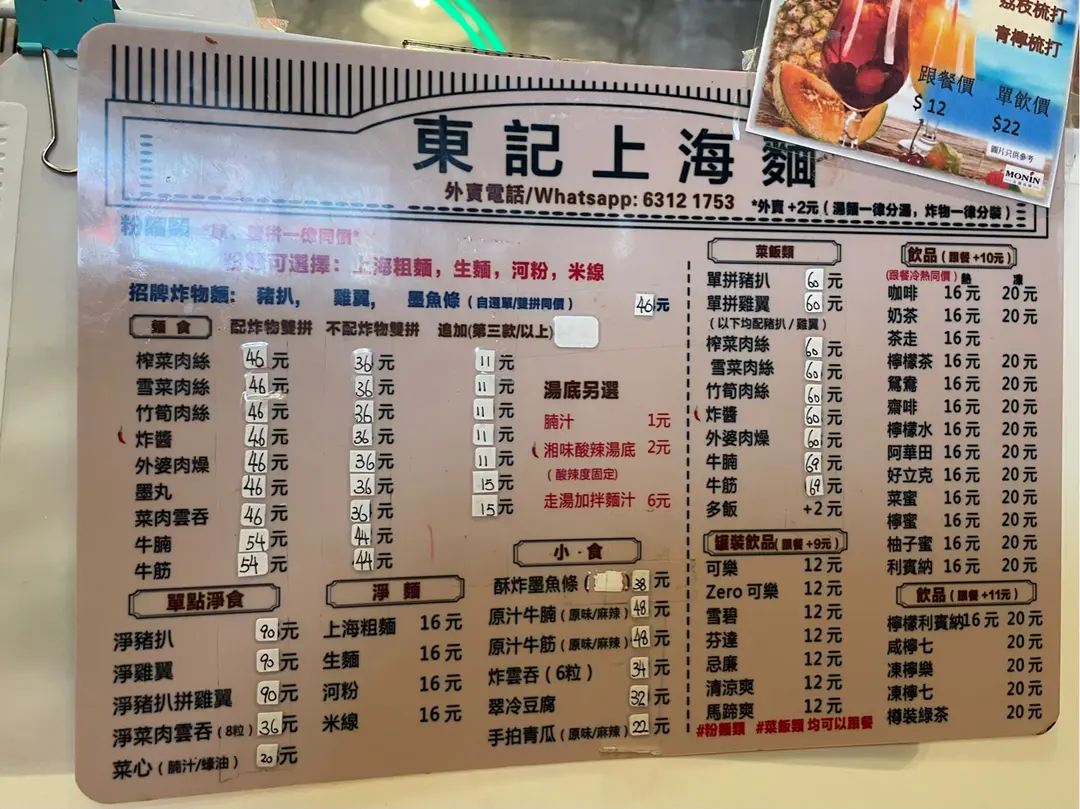 荔枝梳打
青檸梳打
跟餐價
$12
單飲價
$22
圖片只供參考
MONIN
東記上海麵
外賣電話/Whatsapp: 6312 1753
*外賣 +2元 ( 湯麵一律分湯，炸物一律分裝 )
粉麵類 *單、雙拼一律同價*
粉麵可選擇：上海粗麵，生麵，河粉，米線
招牌炸物麵： 豬扒， 雞翼， 墨魚條 ( 自選單/雙拼同價 ) 46元
麵食 配炸物雙拼 不配炸物雙拼 追加(第三款/以上)
榨菜肉絲 46元 36元 11元
雪菜肉絲 46元 36元 11元
竹筍肉絲 46元 36元 11元
炸醬 46元 36元 11元
外婆肉燥 46元 36元 11元
墨丸 46元 36元 15元
菜肉雲吞 46元 36元 15元
牛腩 54元 44元
牛筋 54元 44元
湯底另選
腩汁 1元
湘味酸辣湯底 2元
( 酸辣度固定)
走湯加拌麵汁 6元
單點淨食
淨豬扒 90元
淨雞翼 90元
淨豬扒拼雞翼 90元
淨菜肉雲吞 (8粒) 36元
菜心 ( 腩汁/蠔油 ) 20元
淨麵
上海粗麵 16元
生麵 16元
河粉 16元
米線 16元
小·食
酥炸墨魚條 38元
原汁牛腩 ( 原味/麻辣 ) 48元
原汁牛筋 ( 原味/麻辣 ) 48元
炸雲吞 ( 6粒 ) 34元
翠冷豆腐 32元
手拍青瓜 ( 原味/麻辣 ) 22元
菜飯類
單拼豬扒 60元
單拼雞翼 60元
( 以下均配豬扒 / 雞翼 )
榨菜肉絲 60元
雪菜肉絲 60元
竹筍肉絲 60元
炸醬 60元
外婆肉燥 60元
牛腩 69元
牛筋 69元
多飯 +2元
罐裝飲品( 跟餐 +9元 )
可樂 12元
Zero 可樂 12元
雪碧 12元
芬達 12元
忌廉 12元
清涼爽 12元
馬蹄爽 12元
#粉麵類 #菜飯類 均可以跟餐
飲品 ( 跟餐 +10元 )
(跟餐冷熱同價) 熱 凍
咖啡 16元 20元
奶茶 16元 20元
茶走 16元
檸檬茶 16元 20元
鴛鴦 16元 20元
齋啡 16元 20元
檸檬水 16元 20元
阿華田 16元 20元
好立克 16元 20元
菜蜜 16元 20元
檸蜜 16元 20元
柚子蜜 16元 20元
利賓納 16元 20元
飲品 ( 跟餐 +11元 )
檸檬利賓納16元 20元
咸檸七 20元
凍檸樂 20元
凍檸七 20元
樽裝綠茶 20元